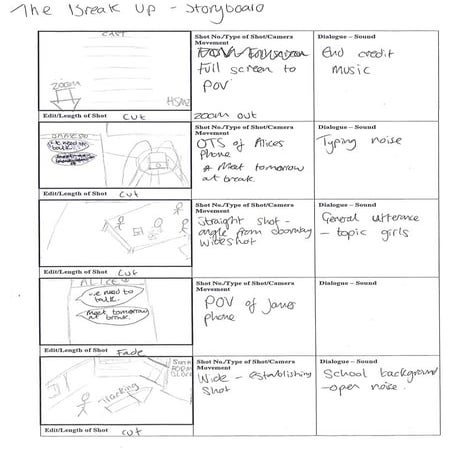 The Break Up - Storyboard
CAST
ZOOM
Shot No./Type of Shot/Camera Movement
Full screen to
POV
Dialogue – Sound
End credit
music
Edit/Length of Shot
cut
zoom out
we need to
talk.
Shot No./Type of Shot/Camera Movement
OTS of Alices
Phone
Meet tomorrow
at break.
Dialogue – Sound
Typing noise
Edit/Length of Shot
cut
Shot No./Type of Shot/Camera Movement
Straight shot -
angle from doorway
wide shot
Dialogue – Sound
General utterance
- topic girls
Edit/Length of Shot
cut
ALICE
we need to
talk.
Meet tomorrow
at break.
Shot No./Type of Shot/Camera Movement
POV of James
phone
Dialogue – Sound
Edit/Length of Shot
Fade
Tracking
Shot No./Type of Shot/Camera Movement
Wide - establishing
shot
Dialogue – Sound
School background
- open noise.
Edit/Length of Shot
cut